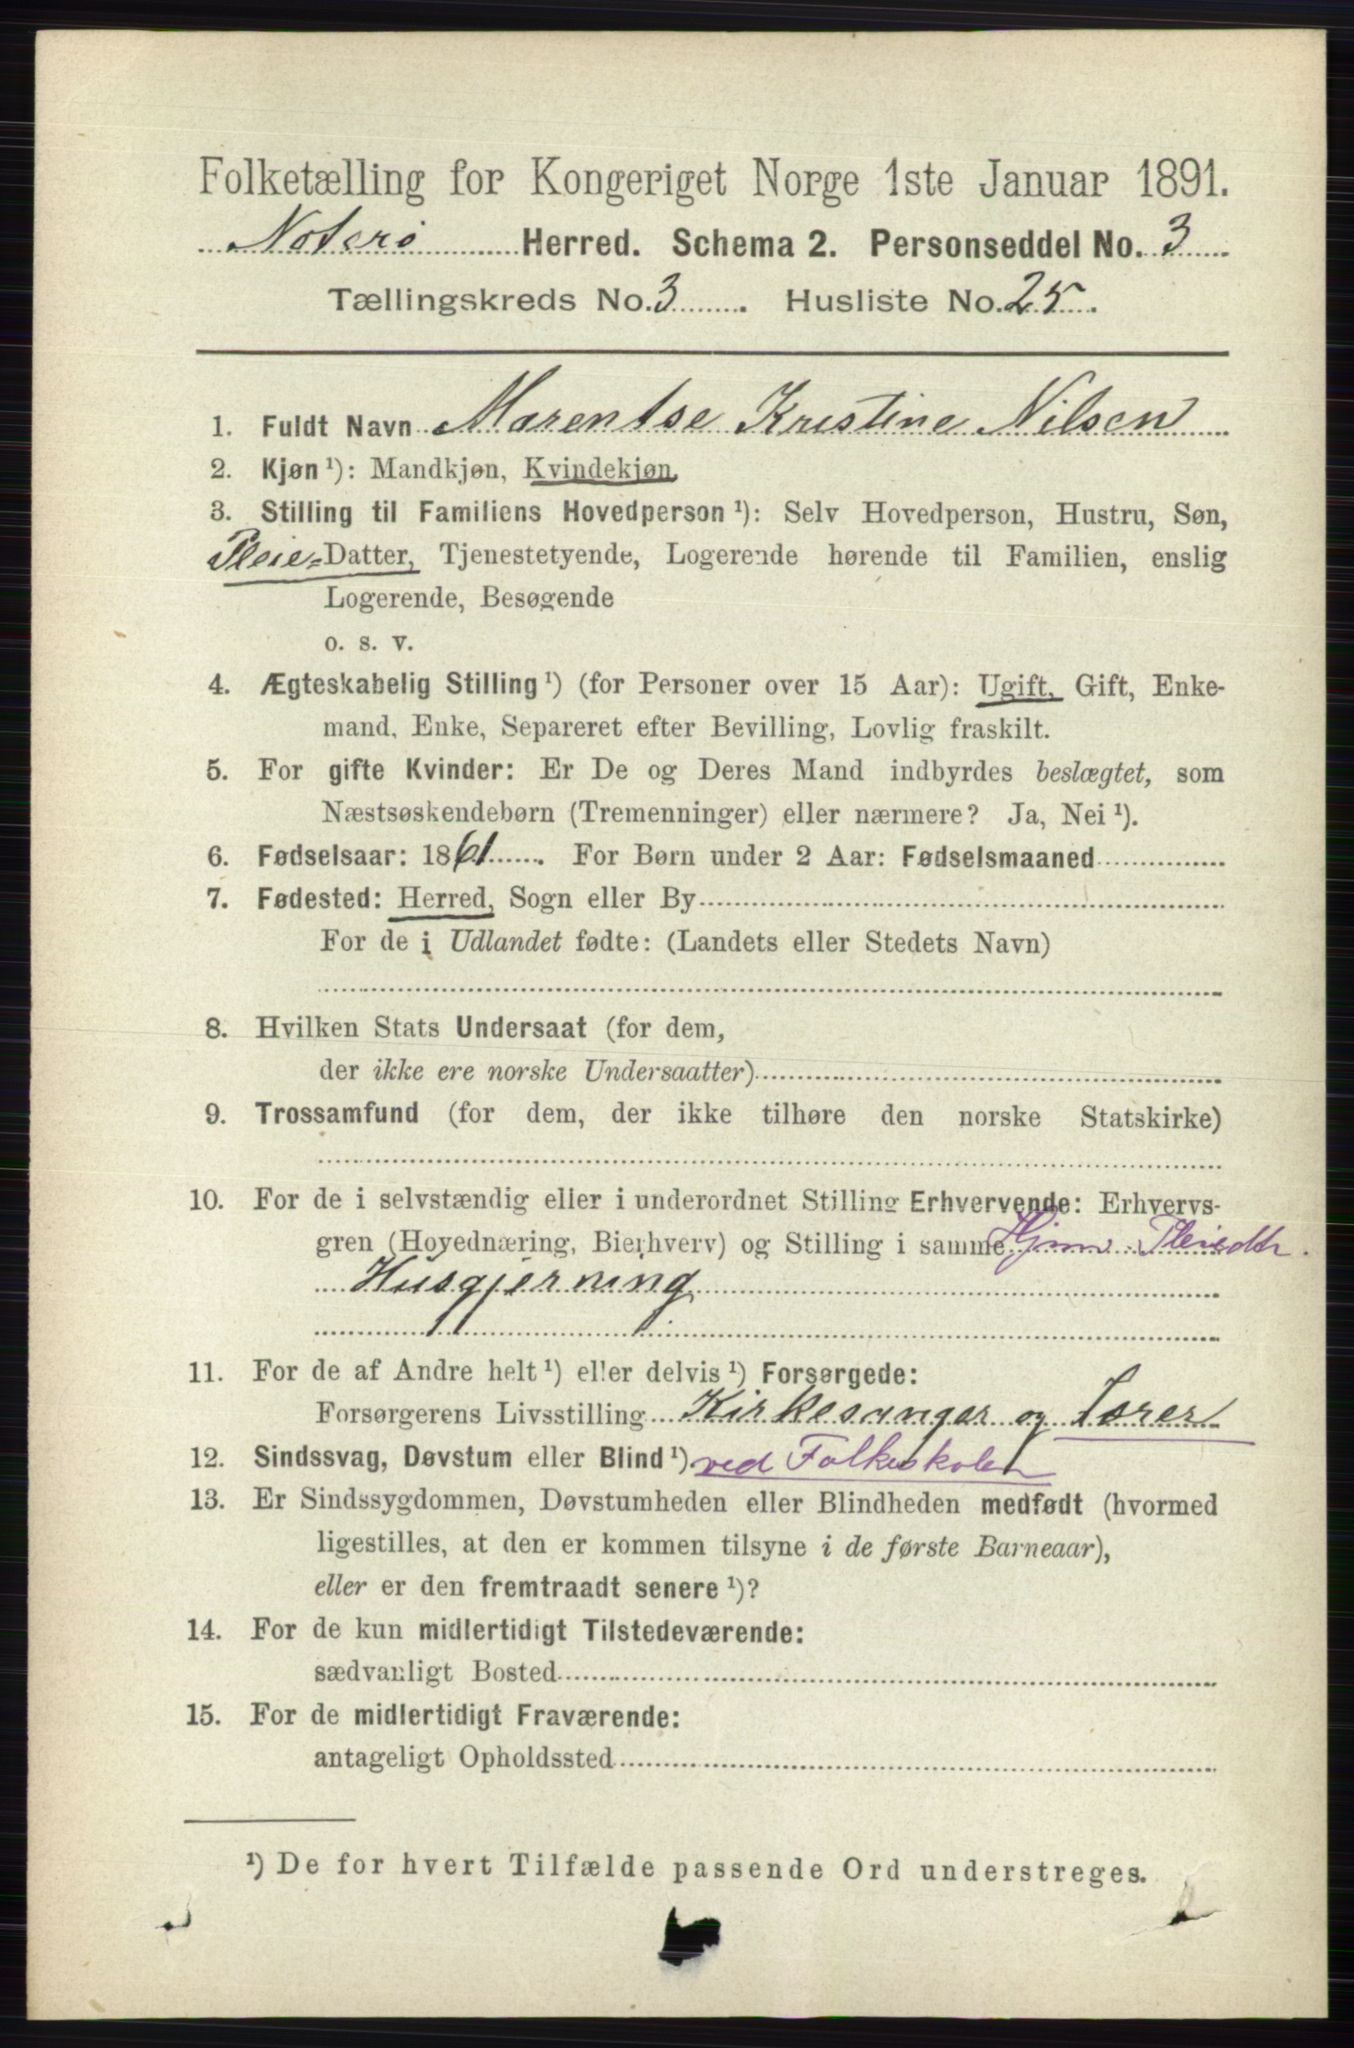 Folketælling for Kongeriget Norge 1ste Januar 1891.
Noterø Herred. Schema 2. Personseddel No. 3
Tællingskreds No. 3 . Husliste No. 25 .
1. Fuldt Navn Marentse Kristine Nilsen
2. Kjøn ¹): Mandkjøn, Kvindekjøn.
3. Stilling til Familiens Hovedperson ¹): Selv Hovedperson, Hustru, Søn,
Pleie- Datter, Tjenestetyende, Logerende hørende til Familien, enslig
Logerende, Besøgende
o. s. v.
4. Ægteskabelig Stilling ¹) (for Personer over 15 Aar): Ugift, Gift, Enke-
mand, Enke, Separeret efter Bevilling, Lovlig fraskilt.
5. For gifte Kvinder: Er De og Deres Mand indbyrdes beslægtet, som
Næstsøskendebørn (Tremenninger) eller nærmere? Ja, Nei ¹).
6. Fødselsaar: 1861 . For Børn under 2 Aar: Fødselsmaaned
7. Fødested: Herred, Sogn eller By
For de i Udlandet fødte: (Landets eller Stedets Navn)
8. Hvilken Stats Undersaat (for dem,
der ikke ere norske Undersaatter)
9. Trossamfund (for dem, der ikke tilhøre den norske Statskirke)
10. For de i selvstændig eller i underordnet Stilling Erhvervende: Erhvervs-
gren (Hovednæring, Bierhverv) og Stilling i samme Pleiedtr.
Husgjerning
11. For de af Andre helt ¹) eller delvis ¹) Forsørgede:
Forsørgerens Livsstilling Kirkesanger og Lærer
12. Sindssvag, Døvstum eller Blind ¹) ved Folkeskolen
13. Er Sindssygdommen, Døvstumheden eller Blindheden medfødt (hvormed
ligestilles, at den er kommen tilsyne i de første Barneaar),
eller er den fremtraadt senere ¹)?
14. For de kun midlertidigt Tilstedeværende:
sædvanligt Bosted
15. For de midlertidigt Fraværende:
antageligt Opholdssted
¹) De for hvert Tilfælde passende Ord understreges.